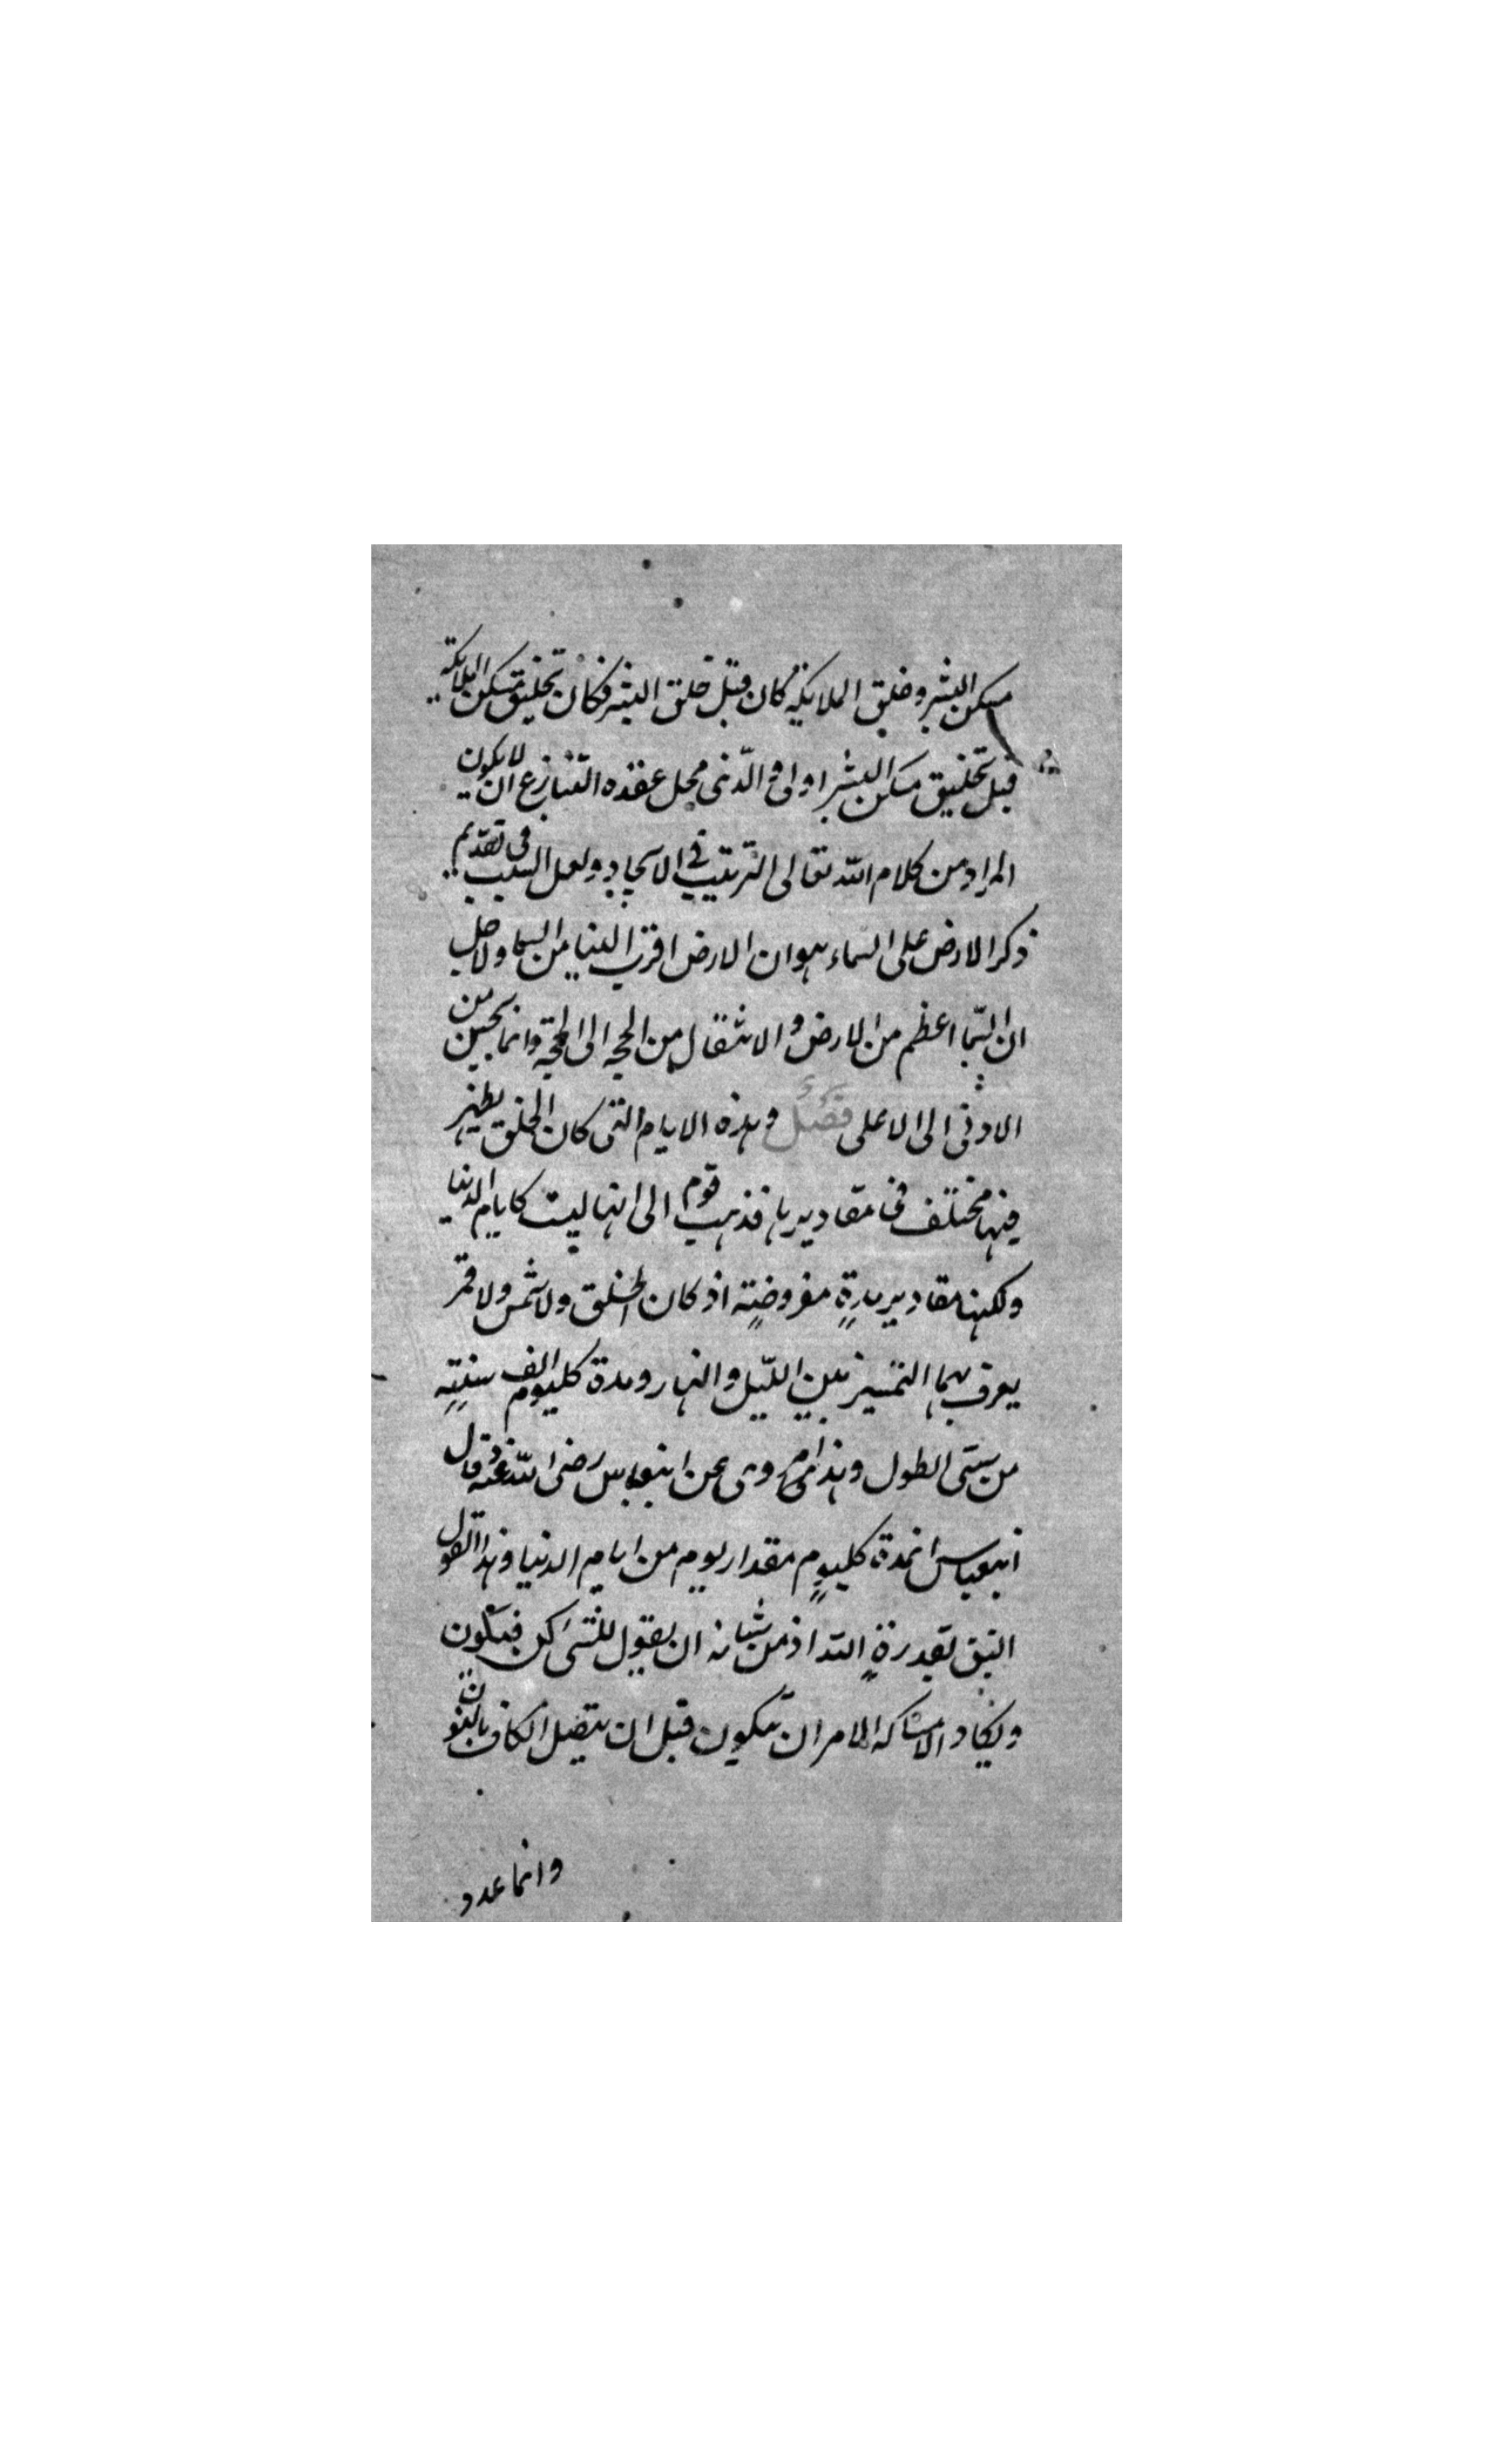 مسكن البشر وخلق الملايكة كان قبل خلق البشر فكان تخليق مسكن الملايكة
قبل تخليق مسكن البشر اولى والذى محل عقده التنازع ان لايكون
المراد من كلام الله تعالى الترتيب فى الايجاد ولعل السبب فى تقديم
ذكر الارض على السماء هو ان الارض اقرب الينا من السما ولاجل
ان السما اعظم من الارض والانتقال من الحجه الى الحجة وانما يحسن من
الادنى الى الاعلى فصل وهذه الايام التى كان الخلق يظهر
فيها مختلف فى مقاديرها فذهب قوم الى انها ليست كايام الدنيا
ولكنها مقادير مفروضة اذ كان الخلق ولا شمس ولا قمر
يعرف بهما التمييز بين الليل والنهار ومدة كليوم الف سنة
من سنتى الطول وهذا مروى عن ابنعباس رضى الله عنه وقال
ابنعباس انمدة كليوم مقدار يوم من ايام الدنيا وهذا القول
اليق بقدرة الله اذ من شانه ان يقول للشئ كن فيكون
ويكاد الامر ان يتكون قبل ان يتصل الكاف بالنون
وانما عدد